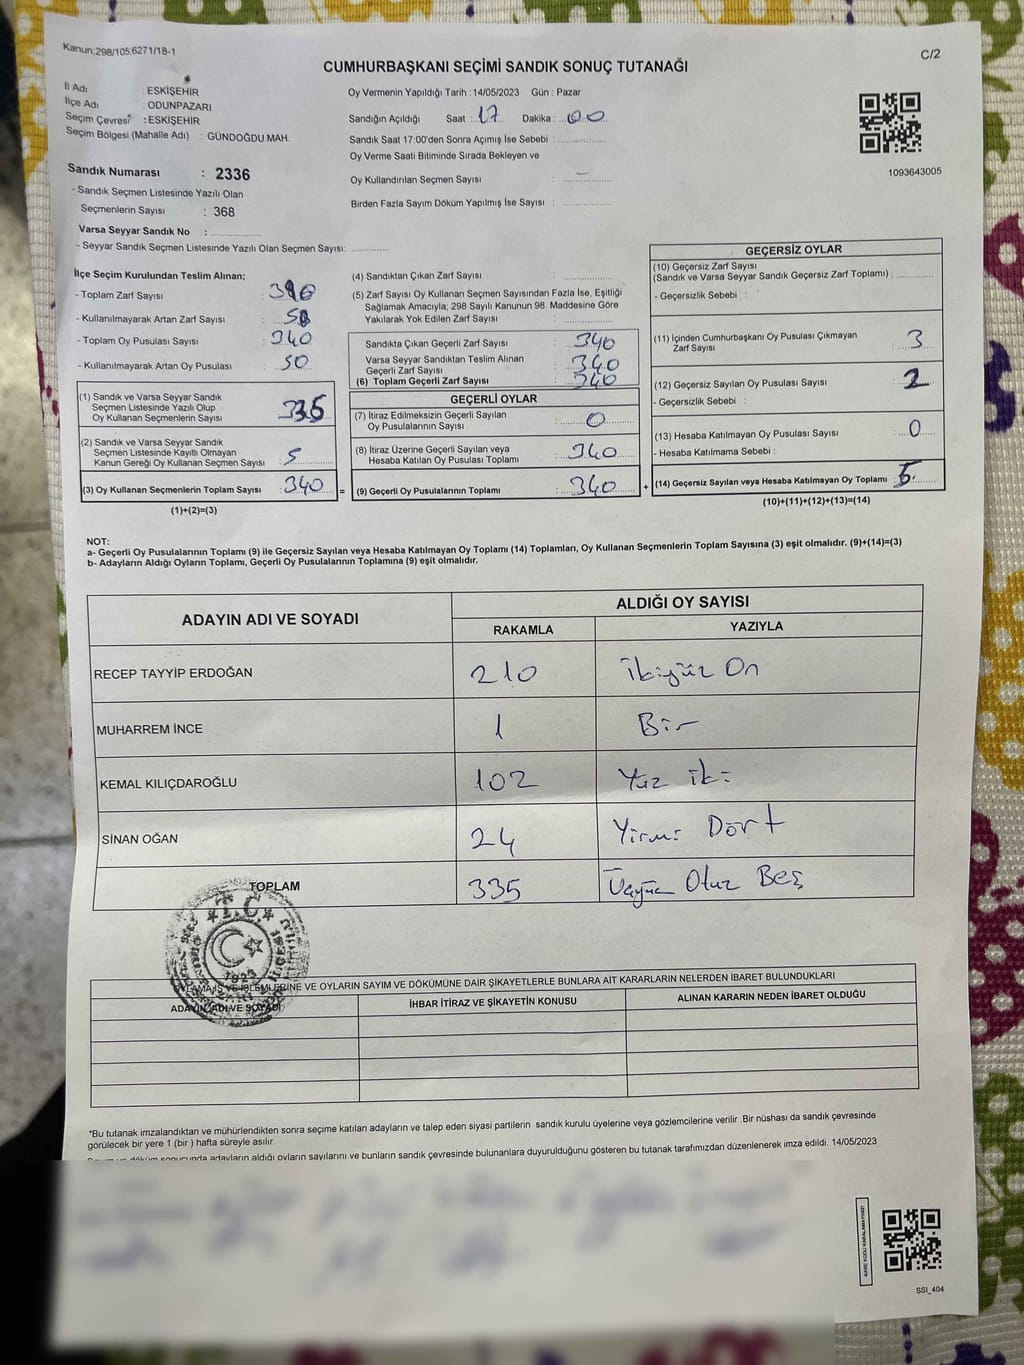 Kanun:298/105,6271/18-1
C/2
CUMHURBAŞKANI SEÇİMİ SANDIK SONUÇ TUTANAĞI
İl Adı : ESKİŞEHİR
İlçe Adı : ODUNPAZARI
Seçim Çevresi : ESKİŞEHİR
Seçim Bölgesi (Mahalle Adı) : GÜNDOĞDU MAH.
Oy Vermenin Yapıldığı Tarih : 14/05/2023 Gün : Pazar
Sandığın Açıldığı Saat : 17 Dakika : 00
Sandık Saat 17:00'den Sonra Açımış İse Sebebi :
Oy Verme Saati Bitiminde Sırada Bekleyen ve
Oy Kullandırılan Seçmen Sayısı : -
Birden Fazla Sayım Döküm Yapılmış İse Sayısı :
1093643005
Sandık Numarası : 2336
- Sandık Seçmen Listesinde Yazılı Olan
Seçmenlerin Sayısı : 368
Varsa Seyyar Sandık No :
- Seyyar Sandık Seçmen Listesinde Yazılı Olan Seçmen Sayısı:
İlçe Seçim Kurulundan Teslim Alınan;
- Toplam Zarf Sayısı : 390
- Kullanılmayarak Artan Zarf Sayısı : 50
- Toplam Oy Pusulası Sayısı : 340
- Kullanılmayarak Artan Oy Pusulası : 50
(1) Sandık ve Varsa Seyyar Sandık
Seçmen Listesinde Yazılı Olup
Oy Kullanan Seçmenlerin Sayısı : 335
(2) Sandık ve Varsa Seyyar Sandık
Seçmen Listesinde Kayıtlı Olmayan
Kanun Gereği Oy Kullanan Seçmen Sayısı : 5
(3) Oy Kullanan Seçmenlerin Toplam Sayısı : 340 =
(1)+(2)=(3)
(4) Sandıktan Çıkan Zarf Sayısı :
(5) Zarf Sayısı Oy Kullanan Seçmen Sayısından Fazla İse, Eşitliği
Sağlamak Amacıyla; 298 Sayılı Kanunun 98. Maddesine Göre
Yakılarak Yok Edilen Zarf Sayısı :
Sandıkta Çıkan Geçerli Zarf Sayısı : 340
Varsa Seyyar Sandıktan Teslim Alınan
Geçerli Zarf Sayısı : 340
(6) Toplam Geçerli Zarf Sayısı : 340
GEÇERLİ OYLAR
(7) İtiraz Edilmeksizin Geçerli Sayılan
Oy Pusulalarının Sayısı : 0
(8) İtiraz Üzerine Geçerli Sayılan veya
Hesaba Katılan Oy Pusulası Toplamı : 340
(9) Geçerli Oy Pusulalarının Toplamı : 340 +
GEÇERSİZ OYLAR
(10) Geçersiz Zarf Sayısı
(Sandık ve Varsa Seyyar Sandık Geçersiz Zarf Toplamı) :
- Geçersizlik Sebebi :
(11) İçinden Cumhurbaşkanı Oy Pusulası Çıkmayan
Zarf Sayısı : 3
(12) Geçersiz Sayılan Oy Pusulası Sayısı : 2
- Geçersizlik Sebebi :
(13) Hesaba Katılmayan Oy Pusulası Sayısı : 0
- Hesaba Katılmama Sebebi :
(14) Geçersiz Sayılan veya Hesaba Katılmayan Oy Toplamı : 5
(10)+(11)+(12)+(13)=(14)
NOT:
a- Geçerli Oy Pusulalarının Toplamı (9) ile Geçersiz Sayılan veya Hesaba Katılmayan Oy Toplamı (14) Toplamları, Oy Kullanan Seçmenlerin Toplam Sayısına (3) eşit olmalıdır. (9)+(14)=(3)
b- Adayların Aldığı Oyların Toplamı, Geçerli Oy Pusulalarının Toplamına (9) eşit olmalıdır.
ADAYIN ADI VE SOYADI
ALDIĞI OY SAYISI
RAKAMLA YAZIYLA
RECEP TAYYİP ERDOĞAN 210 İkiyüz On
MUHARREM İNCE 1 Bir
KEMAL KILIÇDAROĞLU 102 Yüz iki
SİNAN OĞAN 24 Yirmi Dört
TOPLAM 335 Üçyüz Otuz Beş
T.C.
1923
VE İŞLEMLERİNE VE OYLARIN SAYIM VE DÖKÜMÜNE DAİR ŞİKAYETLERLE BUNLARA AİT KARARLARIN NELERDEN İBARET BULUNDUKLARI
ADAYIN ADI VE SOYADI İHBAR İTİRAZ VE ŞİKAYETİN KONUSU ALINAN KARARIN NEDEN İBARET OLDUĞU
*Bu tutanak imzalandıktan ve mühürlendikten sonra seçime katılan adayların ve talep eden siyasi partilerin sandık kurulu üyelerine veya gözlemcilerine verilir .Bir nüshası da sandık çevresinde
görülecek bir yere 1 (bir ) hafta süreyle asılır.
döküm sonucunda adayların aldığı oyların sayılarını ve bunların sandık çevresinde bulunanlara duyurulduğunu gösteren bu tutanak tarafımızdan düzenlenerek imza edildi. 14/05/2023
KARE KODU KARALAMAYINIZ!
SSI_404